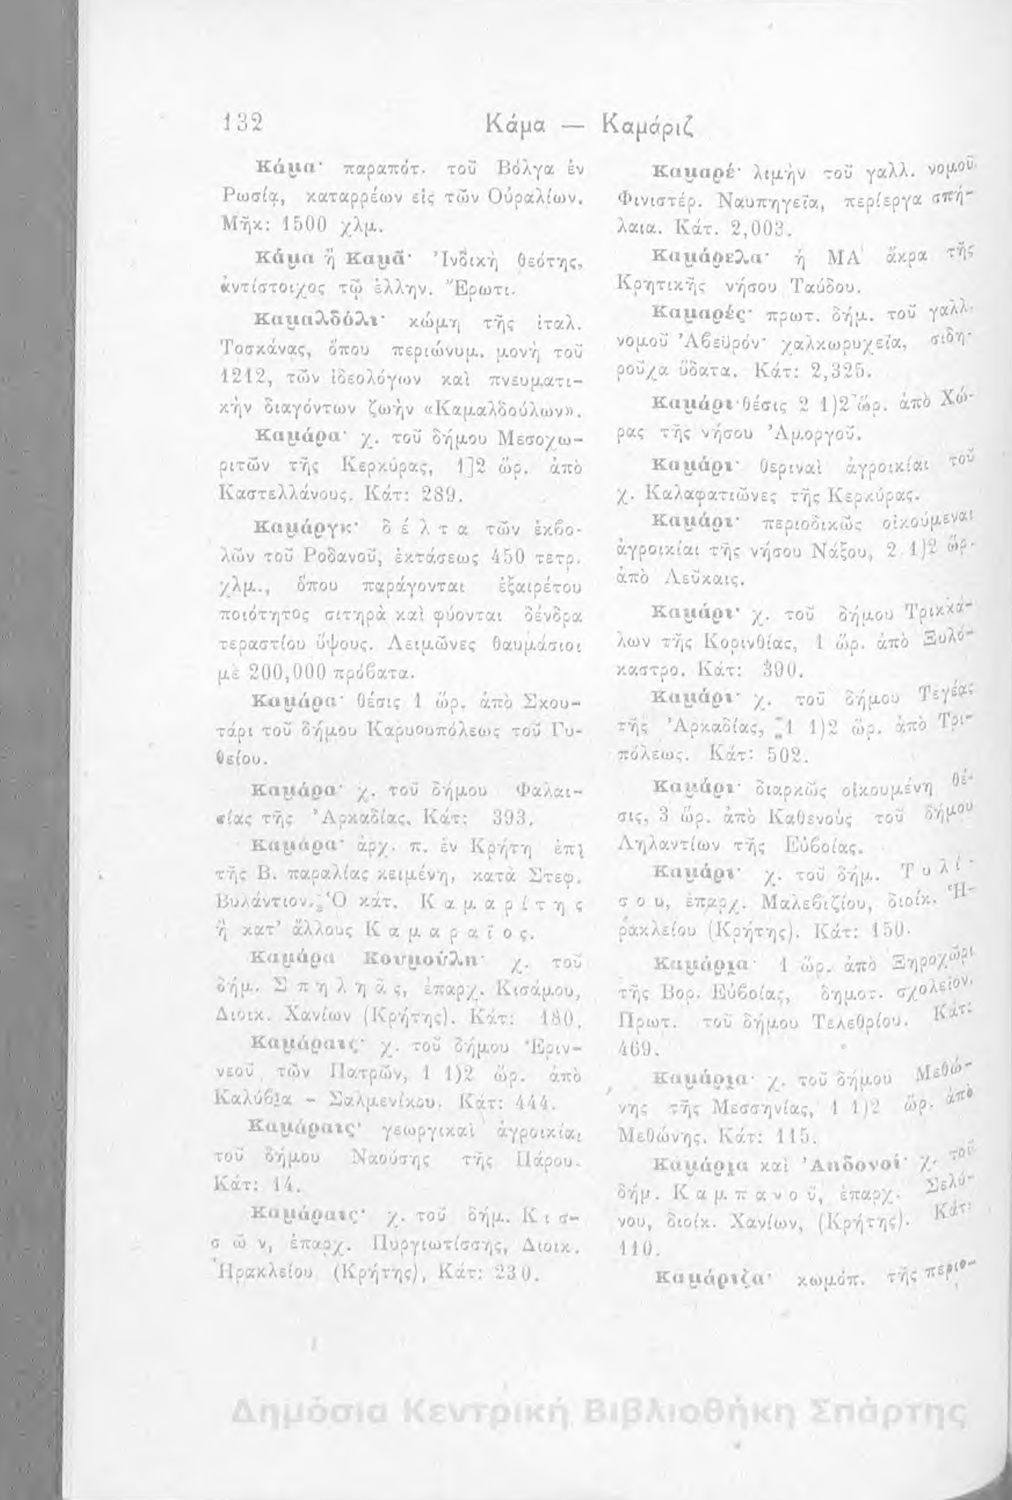 132
Κάμα — Καμάριζ
Κάμα· παραπότ. τοῦ Βόλγα ἐν
Ρωσίᾳ, καταρρέων εἰς τῶν Οὐραλίων.
Μῆκ: 1500 χλμ.
Κάμα ἢ Καμᾶ· Ἰνδικὴ θεότης,
ἀντίστοιχος τῷ ἑλλην. Ἔρωτι.
Καμαλδόλι· κώμη τῆς ἰταλ.
Τοσκάνας, ὅπου περιώνυμ. μονὴ τοῦ
1212, τῶν ἰδεολόγων καὶ πνευματι-
κὴν διαγόντων ζωὴν «Καμαλδούλων».
Καμάρα· χ. τοῦ δήμου Μεσοχω-
ριτῶν τῆς Κερκύρας, 1]2 ὥρ. ἀπὸ
Καστελλάνους. Κάτ: 289.
Καμάργκ· δέλτα τῶν ἐκβο-
λῶν τοῦ Ροδανοῦ, ἐκτάσεως 450 τετρ.
χλμ., ὅπου παράγονται ἐξαιρέτου
ποιότητος σιτηρὰ καὶ φύονται δένδρα
τεραστίου ὕψους. Λειμῶνες θαυμάσιοι
μὲ 200,000 πρόβατα.
Καμάρα· θέσις 1 ὥρ. ἀπὸ Σκου-
τάρι τοῦ δήμου Καρυουπόλεως τοῦ Γυ-
θείου.
Καμάρα· χ. τοῦ δήμου Φαλαι-
σίας τῆς Ἀρκαδίας. Κάτ: 393.
Καμάρα· ἀρχ. π. ἐν Κρήτῃ ἐπὶ
τῆς Β. παραλίας κειμένη, κατὰ Στεφ.
Βυζάντιον. Ὁ κάτ. Καμαρίτης
ἢ κατ' ἄλλους Καμαραῖος.
Καμάρα Κουμούλη· χ. τοῦ
δήμ. Σπηληᾶς, ἐπαρχ. Κισάμου,
Διοικ. Χανίων (Κρήτης). Κάτ: 180.
Καμάραις· χ. τοῦ δήμου Ἐριν-
νεοῦ τῶν Πατρῶν, 1 1)2 ὥρ. ἀπὸ
Καλύβια – Σαλμενίκου. Κάτ: 444.
Καμάραις· γεωργικαὶ ἀγροικίαι
τοῦ δήμου Ναούσης τῆς Πάρου.
Κάτ: 14.
Καμάραις· χ. τοῦ δήμ. Κισ-
σῶν, ἐπαρχ. Πυργιωτίσσης, Διοικ.
Ἡρακλείου (Κρήτης), Κάτ: 230.
Καμαρέ· λιμὴν τοῦ γαλλ. νομοῦ
Φινιστέρ. Ναυπηγεῖα, περίεργα σπή-
λαια. Κάτ. 2,003.
Καμάρελα· ἢ ΜΑ ἄκρα τῆς
Κρητικῆς νήσου Ταύδου.
Καμαρές· πρωτ. δήμ. τοῦ γαλλ.
νομοῦ Ἀβεϋρόν· χαλκωρυχεῖα, σιδη-
ροῦχα ὕδατα. Κάτ: 2,325.
Καμάρι· θέσις 2 1)2 ὥρ. ἀπὸ Χώ-
ρας τῆς νήσου Ἀμοργοῦ.
Καμάρι· θεριναὶ ἀγροικίαι τοῦ
χ. Καλαφατιῶνες τῆς Κερκύρας.
Καμάρι· περιοδικῶς οἰκούμεναι
ἀγροικίαι τῆς νήσου Νάξου, 2 1)2 ὥρ.
ἀπὸ Λεύκαις.
Καμάρι· χ. τοῦ δήμου Τρικκά-
λων τῆς Κορινθίας, 1 ὥρ. ἀπὸ Ξυλό-
καστρο. Κάτ: 390.
Καμάρι· χ. τοῦ δήμου Τεγέας
τῆς Ἀρκαδίας, 1 1)2 ὥρ. ἀπὸ Τρι-
πόλεως. Κάτ: 502.
Καμάρι· διαρκῶς οἰκουμένη θέ-
σις, 3 ὥρ. ἀπὸ Καθενοὺς τοῦ δήμου
Ληλαντίων τῆς Εὐβοίας.
Καμάρι· χ. τοῦ δήμ. Τυλί-
σου, ἐπαρχ. Μαλεβιζίου, διοίκ. Ἡ-
ρακλείου (Κρήτης). Κάτ: 150.
Καμάρια· 1 ὥρ. ἀπὸ Ξηροχῶρι
τῆς Βορ. Εὐβοίας, δημοτ. σχολεῖον.
Πρωτ. τοῦ δήμου Τελεθρίου. Κάτ:
469.
Καμάρια· χ. τοῦ δήμου Μεθώ-
νης τῆς Μεσσηνίας, 1 1)2 ὥρ. ἀπὸ
Μεθώνης. Κάτ: 115.
Καμάρια καὶ Ἀηδονοί· χ. τοῦ
δήμ. Καμπανοῦ, ἐπαρχ. Σελύ-
νου, διοίκ. Χανίων, (Κρήτης). Κάτ:
110.
Καμάριζα· κωμόπ. τῆς περιο-
Δημόσια Κεντρική Βιβλιοθήκη Σπάρτης